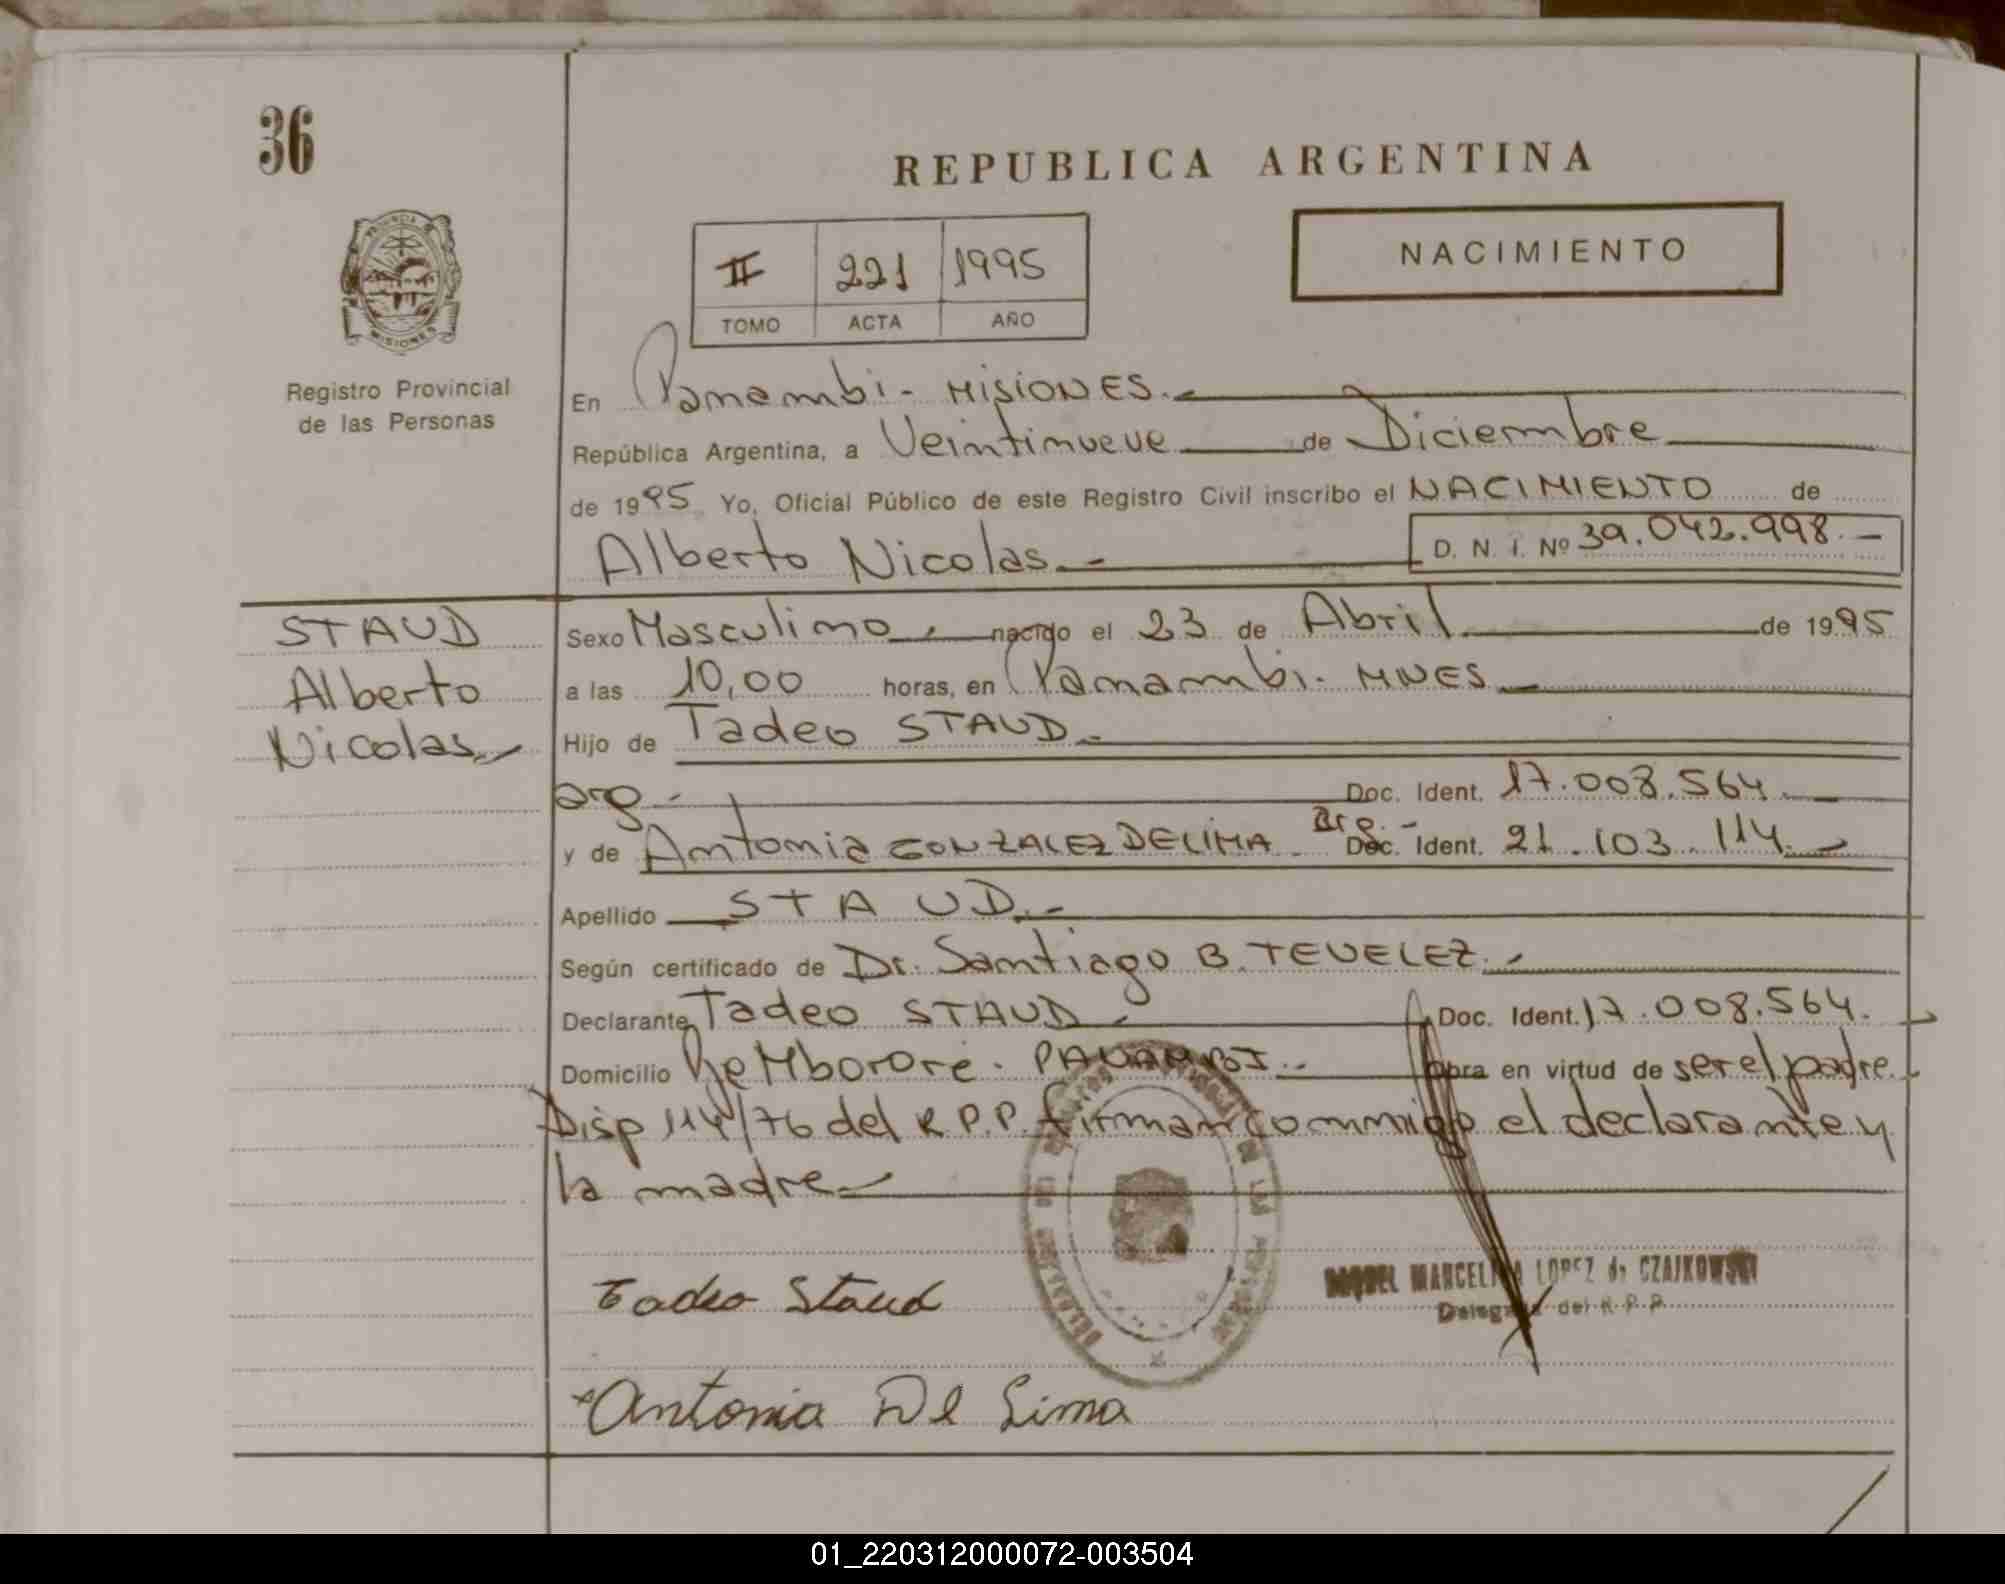 36
REPUBLICA ARGENTINA
NACIMIENTO
II 221 1995
TOMO ACTA AÑO
MISIONES
Registro Provincial
de las Personas
En Panambi - MISIONES.-
República Argentina, a Veintinueve de Diciembre
de 1995 Yo, Oficial Público de este Registro Civil inscribo el NACIMIENTO de
Alberto Nicolas.- D. N. I. Nº 39.042.998.-
STAUD
Alberto
Nicolas.-
Sexo Masculino, nacido el 23 de Abril de 1995
a las 10,00 horas, en Panambi. MNES.-
Hijo de Tadeo STAUD.-
arg.- Doc. Ident. 17.008.564.-
y de Antonia GONZALEZ DELIMA Arg.- Doc. Ident. 21.103.114.-
Apellido STAUD.-
Según certificado de Dr. Santiago B. TEVELEZ.-
Declarante Tadeo STAUD.- Doc. Ident. 17.008.564.
Domicilio PANAMBI.- Obra en virtud de ser el padre
Disp 114/76 del R.P.P. firman conmigo el declarante y
la madre.-
MARCELINA LOPEZ de CZAJKOWSKI
Delegada del R.P.P.
Tadeo Staud
Antonia De Lima
01_220312000072-003504